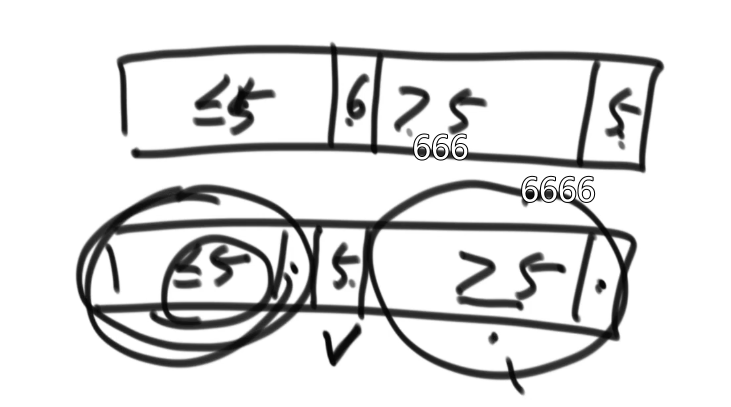 ≤5 6 >5 5
666
6666
≤5 5 ≥5